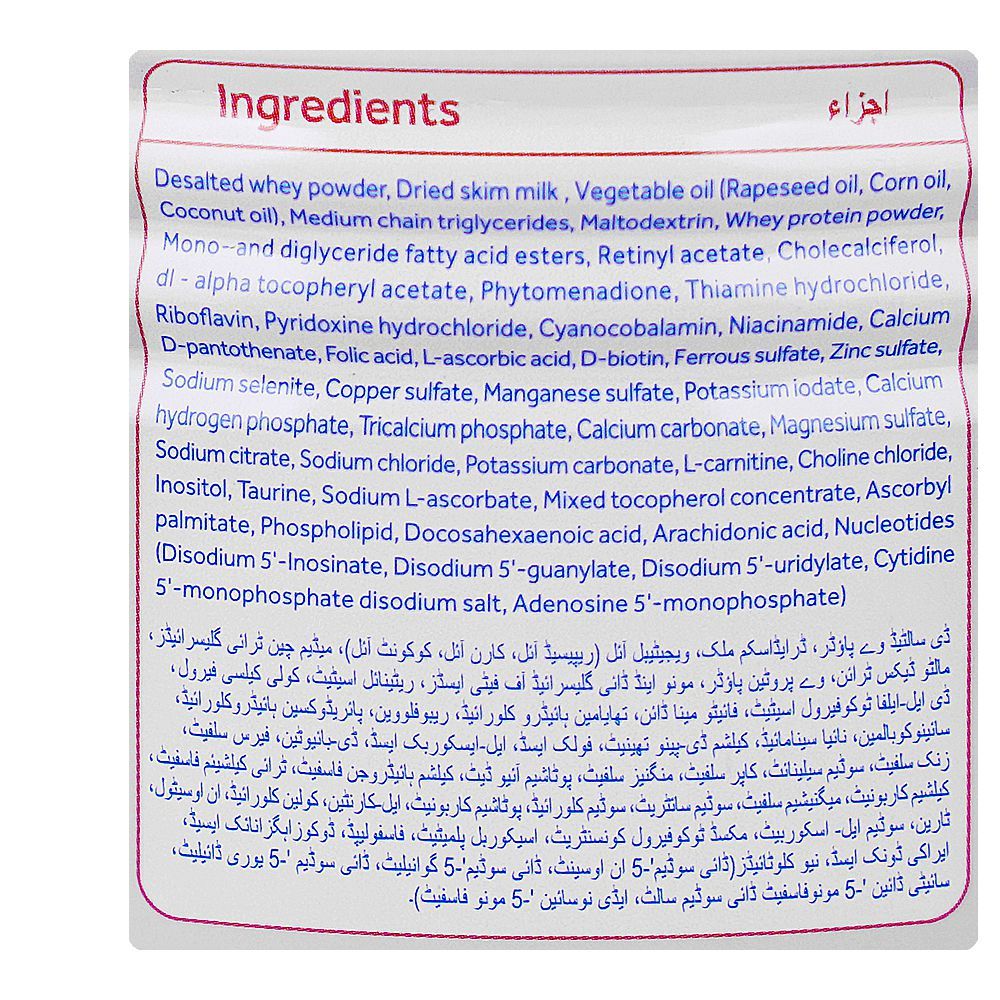 Ingredients
اجزاء
Desalted whey powder, Dried skim milk , Vegetable oil (Rapeseed oil, Corn oil,
Coconut oil), Medium chain triglycerides, Maltodextrin, Whey protein powder,
Mono--and diglyceride fatty acid esters, Retinyl acetate, Cholecalciferol,
dl - alpha tocopheryl acetate, Phytomenadione, Thiamine hydrochloride,
Riboflavin, Pyridoxine hydrochloride, Cyanocobalamin, Niacinamide, Calcium
D-pantothenate, Folic acid, L-ascorbic acid, D-biotin, Ferrous sulfate, Zinc sulfate,
Sodium selenite, Copper sulfate, Manganese sulfate, Potassium iodate, Calcium
hydrogen phosphate, Tricalcium phosphate, Calcium carbonate, Magnesium sulfate,
Sodium citrate, Sodium chloride, Potassium carbonate, L-carnitine, Choline chloride,
Inositol, Taurine, Sodium L-ascorbate, Mixed tocopherol concentrate, Ascorbyl
palmitate, Phospholipid, Docosahexaenoic acid, Arachidonic acid, Nucleotides
(Disodium 5'-Inosinate, Disodium 5'-guanylate, Disodium 5'-uridylate, Cytidine
5'-monophosphate disodium salt, Adenosine 5'-monophosphate)
ڈی سالٹیڈ وے پاؤڈر، ڈرایڈاسکم ملک، ویجیٹیبل آئل (ریپیسیڈ آئل، کارن آئل، کوکونٹ آئل)، میڈیم چین ٹرائی گلیسرائیڈز،
مالٹو ڈیکس ٹرائن، وے پروٹین پاؤڈر، مونو اینڈ ڈائی گلیسرائیڈ آف فیٹی ایسڈز، ریٹینائل اسیٹیٹ، کولی کیلسی فیرول،
ڈی ایل-ایلفا ٹوکوفیرول اسیٹیٹ، فائیٹو مینا ڈائن، تھایامین ہائیڈرو کلورائیڈ، ریبوفلووین، پائریڈوکسین ہائیڈروکلورائیڈ،
سائینوکوبالمین، نائیا سینامائیڈ، کیلشم ڈی-پینٹو تھینیٹ، فولک ایسڈ، ایل-ایسکوربک ایسڈ، ڈی-بائیوٹین، فیرس سلفیٹ،
زنک سلفیٹ، سوڈیم سیلینائٹ، کاپر سلفیٹ، منگنیز سلفیٹ، پوٹاشیم آئیو ڈیٹ، کیلشم ہائیڈروجن فاسفیٹ، ٹرائی کیلشیئم فاسفیٹ،
کیلشیم کاربونیٹ، میگنیشیم سلفیٹ، سوڈیم سائٹریٹ، سوڈیم کلورائیڈ، پوٹاشیم کاربونیٹ، ایل-کارنٹین، کولین کلورائیڈ، ان اوسیٹول،
ٹارین، سوڈیم ایل- اسکوربیٹ، مکسڈ ٹوکوفیرول کونسنٹریٹ، اسیکوربل پلمیٹیٹ، فاسفولیپیڈ، ڈوکوزاہگزانائک ایسیڈ،
ایراکی ڈونک ایسڈ، نیو کلوٹائیڈز(ڈائی سوڈیم'-5 ان اوسینٹ، ڈائی سوڈیم'-5 گوانیلیٹ، ڈائی سوڈیم '-5 یوری ڈائیلیٹ،
سائیٹی ڈائین '-5 مونوفاسفیٹ ڈائی سوڈیم سالٹ، ایڈی نوسائین '-5 مونو فاسفیٹ)۔